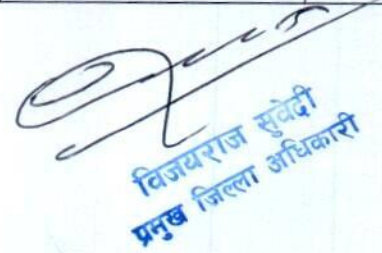 विजयराज सुवेदी
प्रमुख जिल्ला अधिकारी